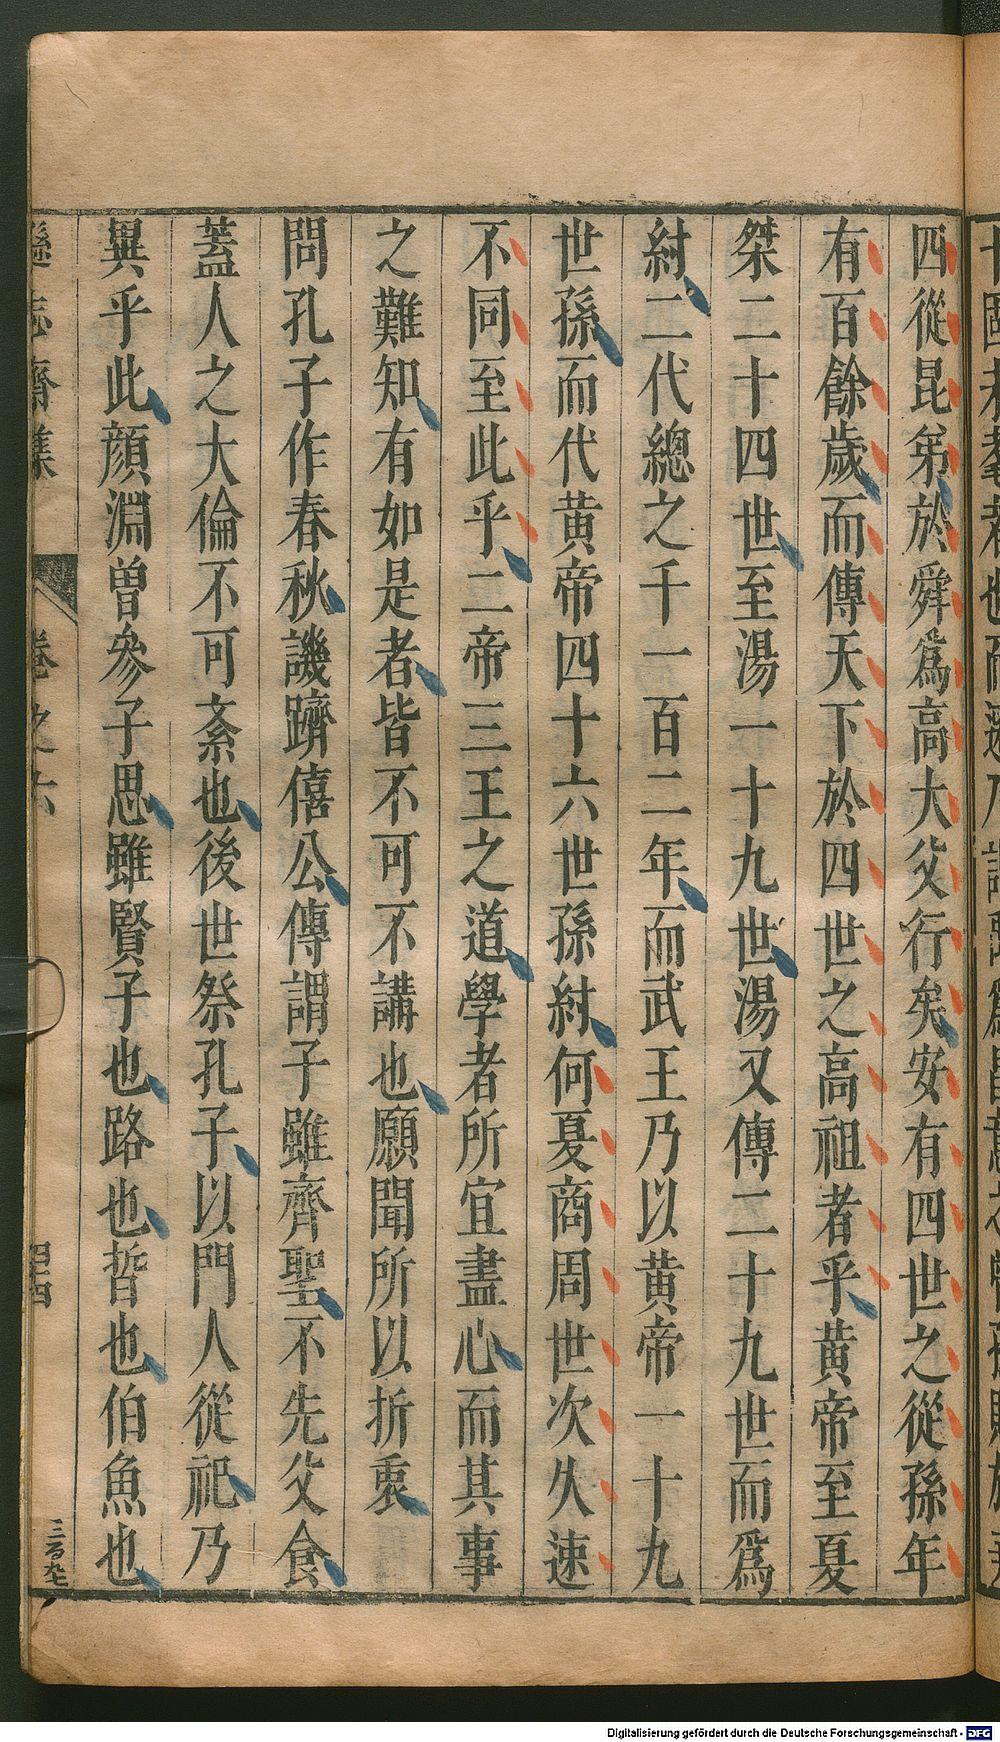 四從昆弟於舜爲高大父行矣安有四世之從孫年
有百餘歲而傳天下於四世之高祖者乎黄帝至夏
桀二十四世至湯一十九世湯又傳二十九世而爲
紂二代總之千一百二年而武王乃以黄帝一十九
世孫而代黄帝四十六世孫紂何夏商周世次久速
不同至此乎二帝三王之道學者所宜盡心而其事
之難知有如是者皆不可不講也願聞所以折衷
問孔子作春秋譏躋僖公傳謂子雖齊聖不先父食
蓋人之大倫不可紊也後世祭孔子以門人從祀乃
異乎此顔淵曾參子思雖賢子也路也晳也伯魚也
遜志齋集 卷之六 四四
Digitalisierung gefördert durch die Deutsche Forschungsgemeinschaft - DFG